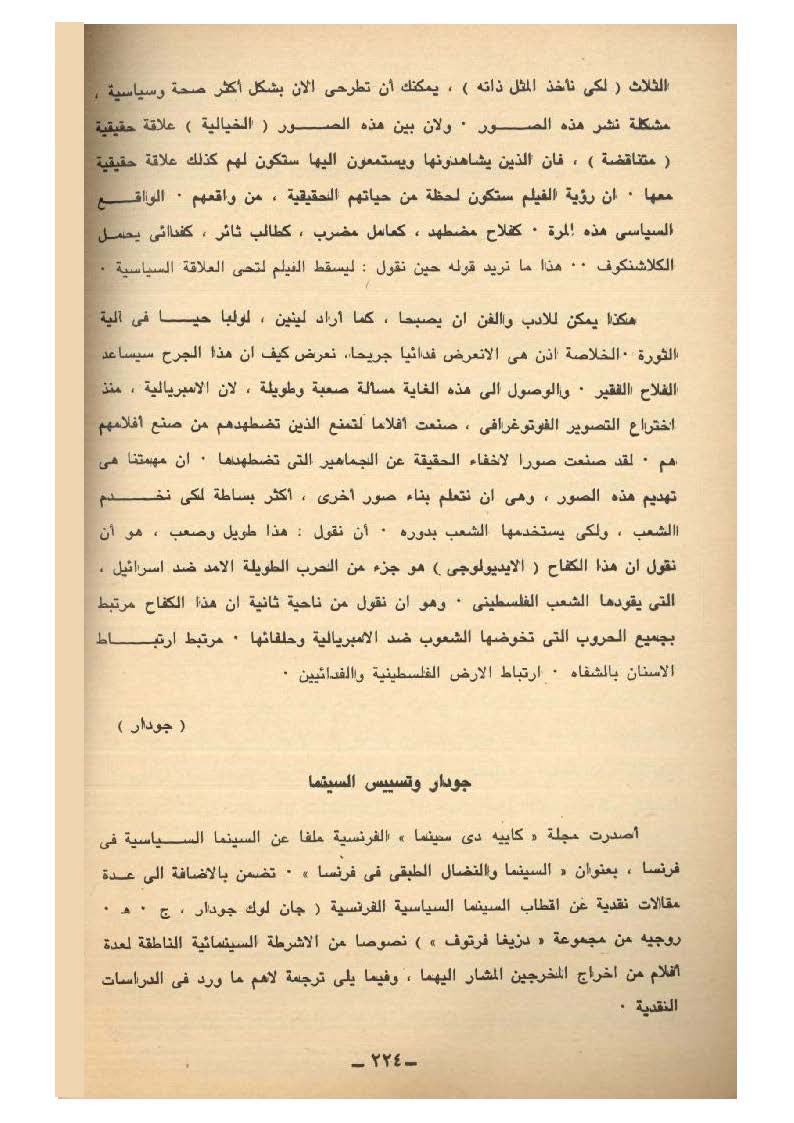 الثلاث ( لكى نأخذ المثل ذاته ) ، يمكنك أن تطرحى الان بشكل أكثر صحة وسياسية ،
مشكلة نشر هذه الصـــور ٠ ولان بين هذه الصـــور ( الخيالية ) علاقة حقيقية
( متناقضة ) ، فان الذين يشاهدونها ويستمعون اليها ستكون لهم كذلك علاقة حقيقية
معها ٠ ان رؤية الفيلم ستكون لحظة من حياتهم الحقيقية ، من واقعهم ٠ الواقـــع
السياسى هذه المرة ٠ كفلاح مضطهد ، كعامل مضرب ، كطالب ثائر ، كفدائى يحمـل
الكلاشنكوف ٠٠ هذا ما نريد قوله حين نقول : ليسقط الفيلم لتحى العلاقة السياسية ٠
هكذا يمكن للادب والفن ان يصبحا ، كما أراد لينين ، لولبا حيـــا فى آلية
الثورة ٠ الخلاصة اذن هى الانعرض فدائيا جريحا، نعرض كيف ان هذا الجرح سيساعد
الفلاح الفقير ٠ والوصول الى هذه الغاية مسألة صعبة وطويلة ، لان الامبريالية ، منذ
اختراع التصوير الفوتوغرافى ، صنعت أفلاما لتمنع الذين تضطهدهم من صنع أفلامهم
هم ٠ لقد صنعت صورا لاخفاء الحقيقة عن الجماهير التى تضطهدها ٠ ان مهمتنا هى
تهديم هذه الصور ، وهى ان نتعلم بناء صور أخرى ، أكثر بساطة لكى نخـــدم
الشعب ، ولكى يستخدمها الشعب بدوره ٠ أن نقول : هذا طويل وصعب ، هو أن
نقول ان هذا الكفاح ( الايديولوجى ) هو جزء من الحرب الطويلة الامد ضد اسرائيل ،
التى يقودها الشعب الفلسطينى ٠ وهو ان نقول من ناحية ثانية ان هذا الكفاح مرتبط
بجميع الحروب التى تخوضها الشعوب ضد الامبريالية وحلفائها ٠ مرتبط ارتبـــاط
الاسنان بالشفاه ٠ ارتباط الارض الفلسطينية والفدائيين ٠
( جودار )
جودار وتسييس السينما
أصدرت مجلة « كاييه دى سينما » الفرنسية ملفا عن السينما الســياسية فى
فرنسا ، بعنوان « السينما والنضال الطبقى فى فرنسا » ٠ تضمن بالاضافة الى عـدة
مقالات نقدية عن اقطاب السينما السياسية الفرنسية ( جان لوك جودار ، ج ٠ هـ ٠
روجيه من مجموعة « دزيغا فرتوف » ) نصوصا من الاشرطة السينمائية الناطقة لعدة
أفلام من اخراج المخرجين المشار اليهما ، وفيما يلى ترجمة لاهم ما ورد فى الدراسات
النقدية ٠
ـ ٢٢٤ ـ